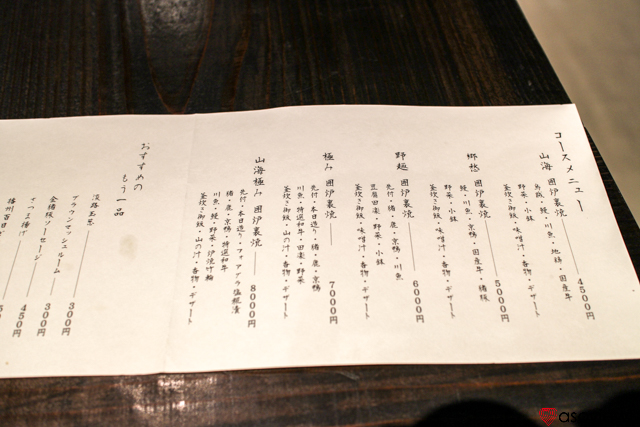 コースメニュー
山海 囲炉裏焼 ―― 4500円
鳥葱・鰻・川魚・地蛸・国産牛
野菜・小鉢
釜炊き御飯・味噌汁・香物・デザート
郷愁 囲炉裏焼 ―― 5000円
鰻・川魚・京鴨・国産牛・猪豚
野菜・小鉢
釜炊き御飯・味噌汁・香物・デザート
野趣 囲炉裏焼 ―― 6000円
先付・猪・鹿・京鴨・川魚
豆腐田楽・野菜・小鉢
釜炊き御飯・味噌汁・香物・デザート
極み 囲炉裏焼 ―― 7000円
先付・本日造り・猪・鹿・京鴨
川魚・特選和牛・田楽・野菜
釜炊き御飯・山の汁・香物・デザート
山海極み 囲炉裏焼 ―― 8000円
先付・本日造り・フォアグラ塩糀漬
猪・鹿・京鴨・特選和牛
川魚・鰻・野菜・炉焼竹輪
釜炊き御飯・山の汁・香物・デザート
おすすめの
もう一品
淡路玉葱
ブラウンマッシュルーム ― 300円
金猪豚ソーセージ ― 300円
さつま揚げ ― 450円
播州百日